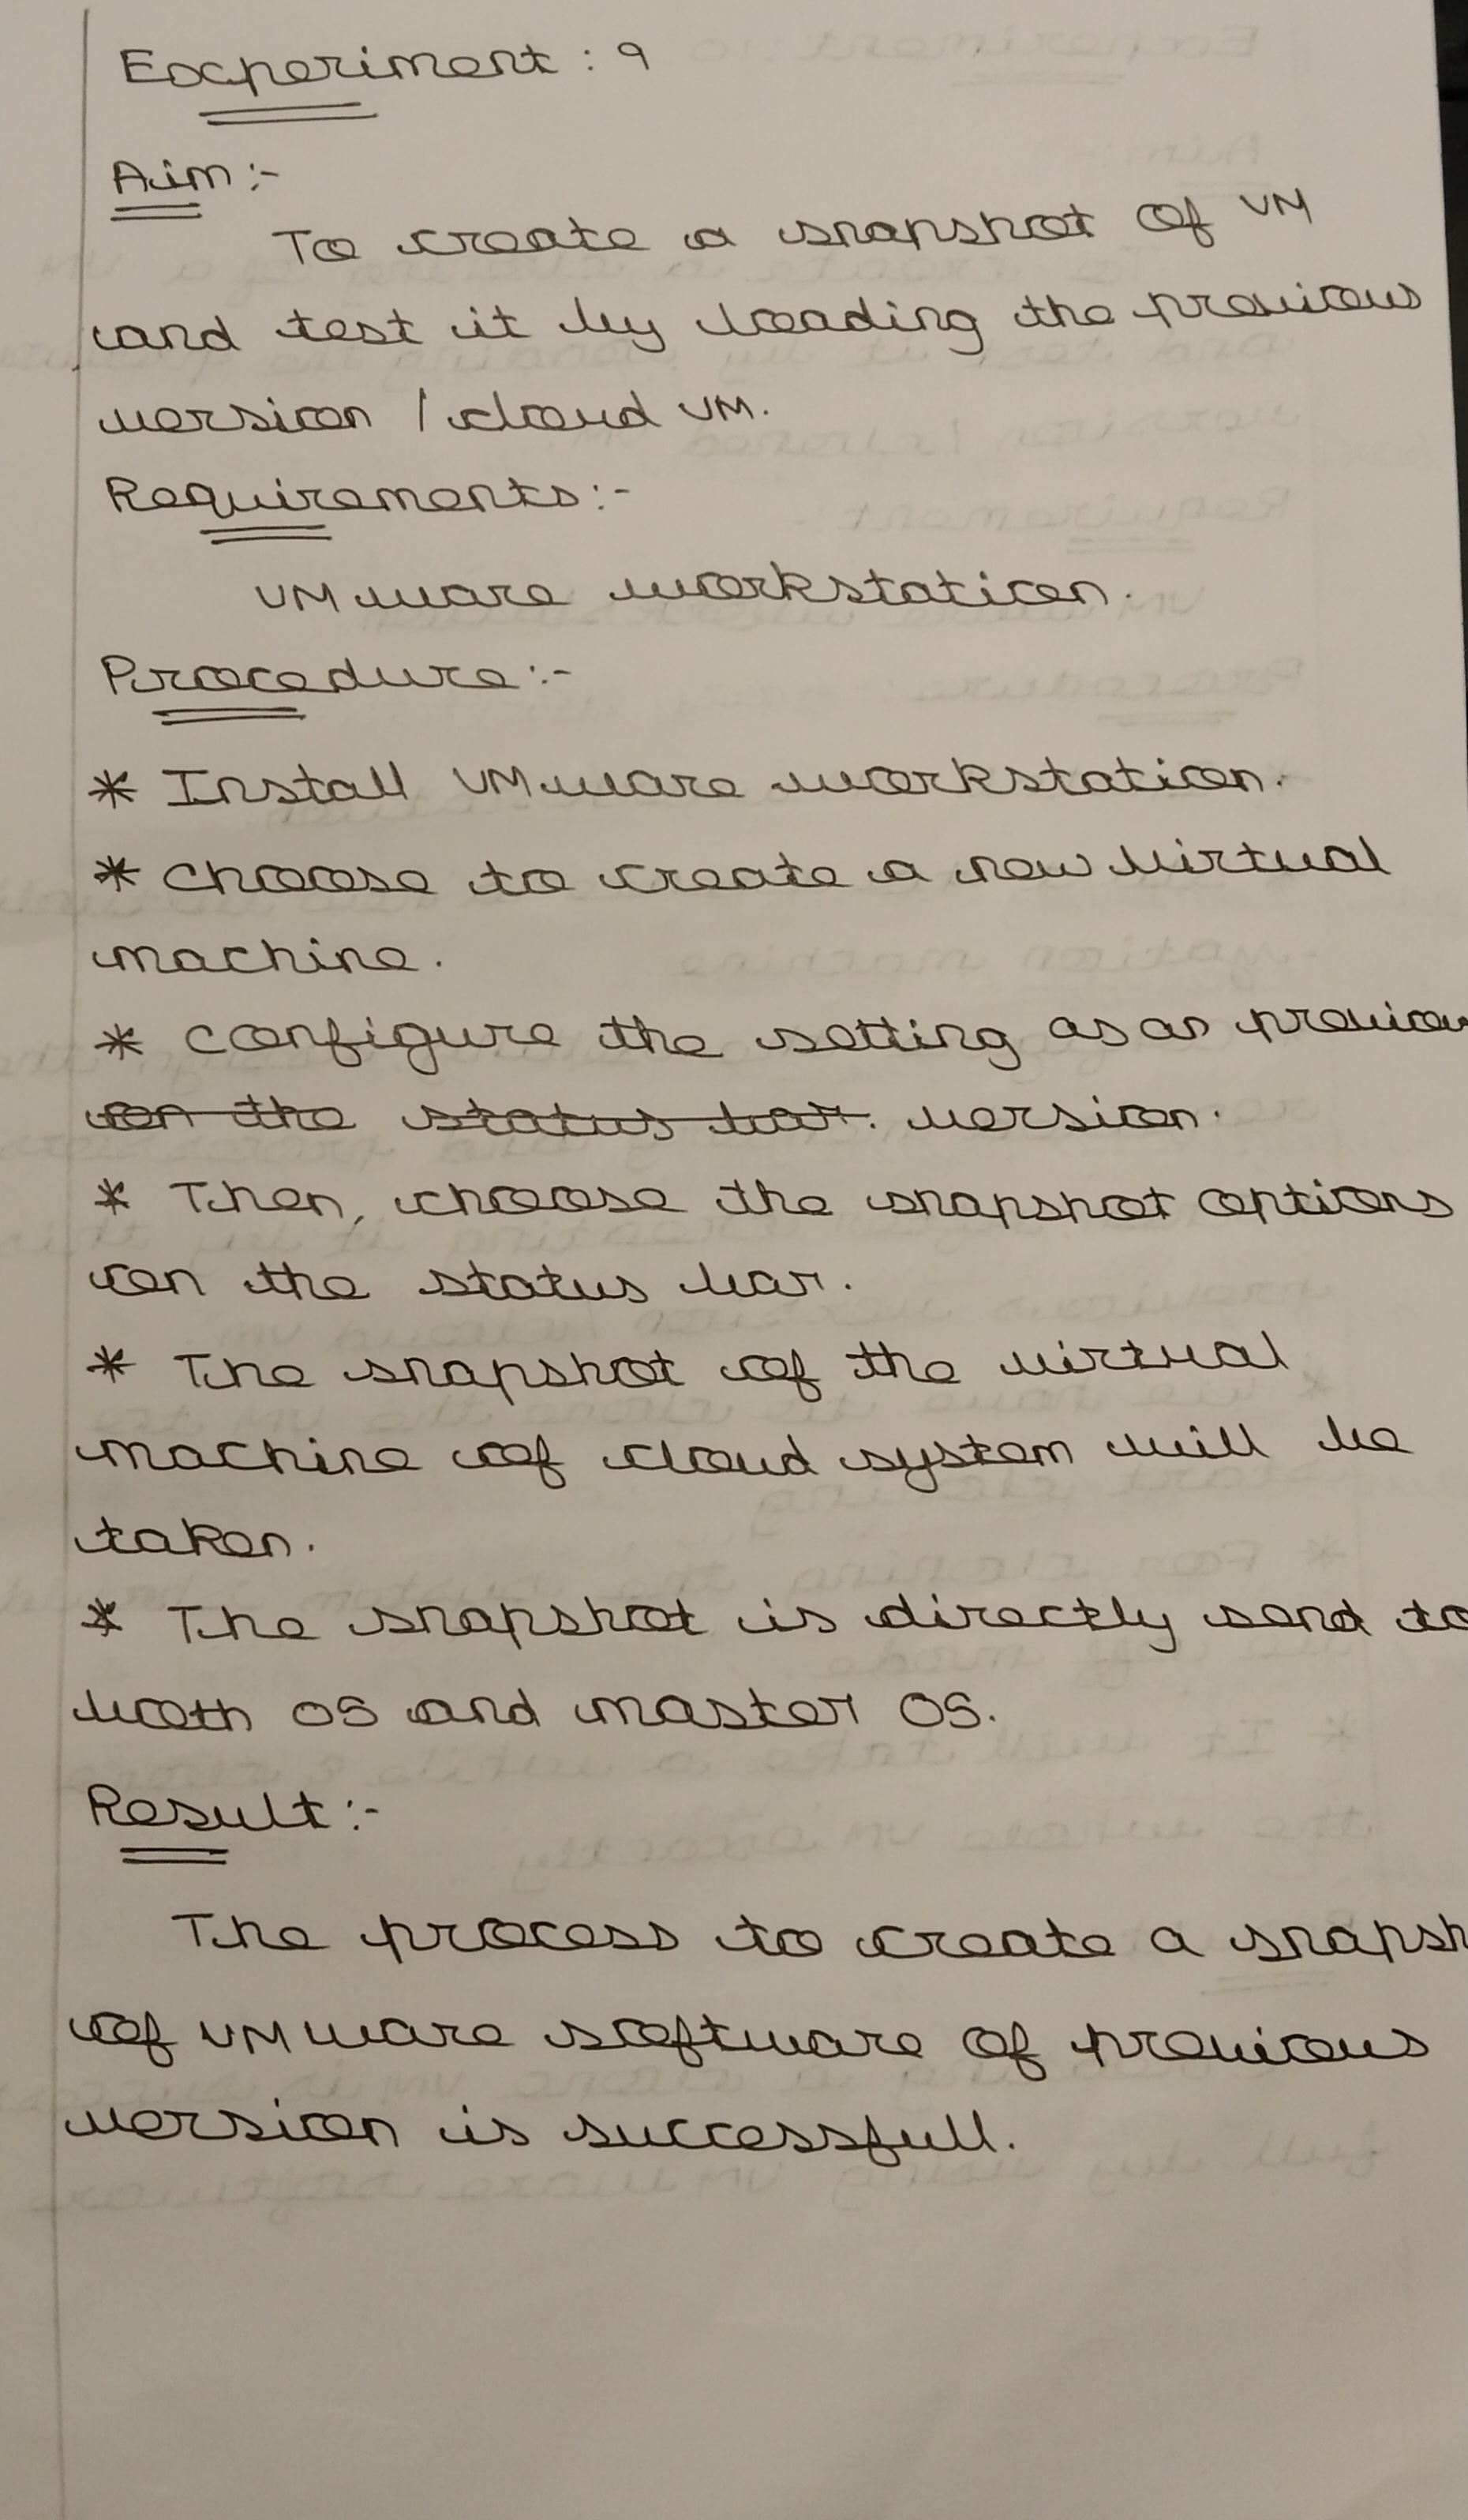 Experiment : 9
Aim :-
To create a snapshot of VM
and test it by loading the previous
version / cloud VM.
Requirements :-
VM ware workstation.
Procedure :-
* Install VM ware workstation.
* Choose to create a new virtual
machine.
* Configure the setting as as previou
on the status bar. version.
* Then, choose the snapshot options
on the status bar.
* The snapshot of the virtual
machine of cloud system will be
taken.
* The snapshot is directly send to
both OS and master OS.
Result :-
The process to create a snapsh
of VM ware software of previous
version is successfull.